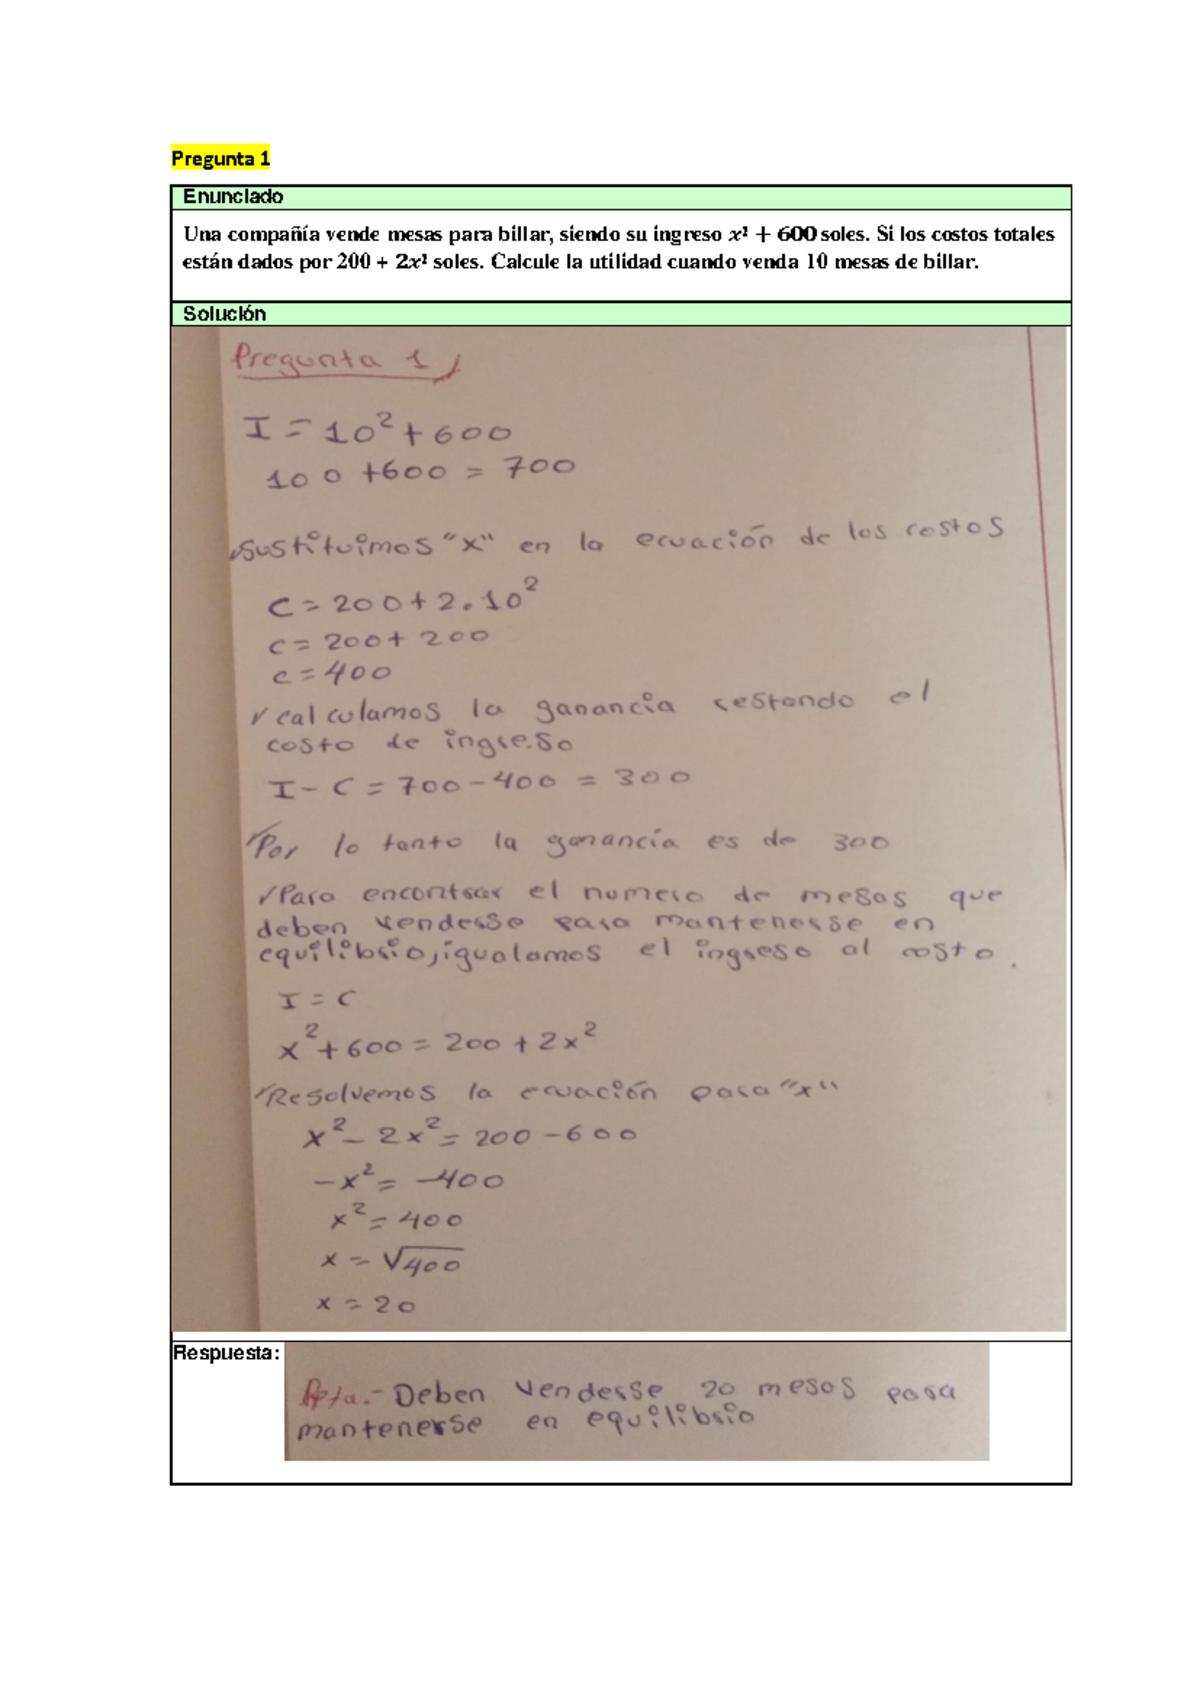 Pregunta 1
Enunciado
Una compañía vende mesas para billar, siendo su ingreso x² + 600 soles. Si los costos totales
están dados por 200 + 2x² soles. Calcule la utilidad cuando venda 10 mesas de billar.
Solución
Pregunta 1
I = 10² + 600
100 + 600 = 700
Sustituimos "x" en la ecuación de los costos
C = 200 + 2.10²
C = 200 + 200
C = 400
✓ calculamos la ganancia restando el
costo de ingreso
I - C = 700 - 400 = 300
✓ Por lo tanto la ganancia es de 300
✓ Para encontrar el numero de mesas que
deben venderse para mantenerse en
equilibrio, igualamos el ingreso al costo.
I = C
x² + 600 = 200 + 2x²
✓ Resolvemos la ecuación para "x"
x² - 2x² = 200 - 600
-x² = -400
x² = 400
x = √400
x = 20
Respuesta:
Rpta.- Deben venderse 20 mesas para
mantenerse en equilibrio